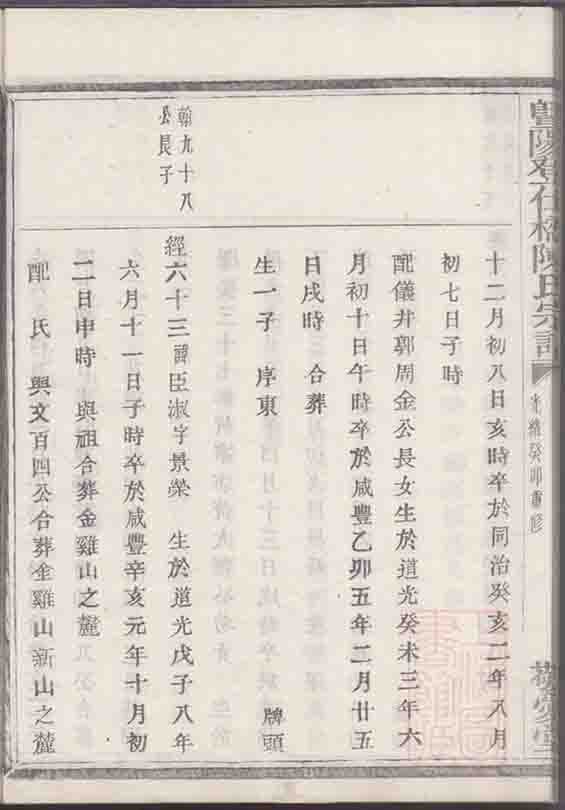 暨陽登仕橋陳氏宗譜
光緒癸卯重修
十二月初八日亥時卒於同治癸亥二年八月
初七日子時
配儀井郭周金公長女生於道光癸未三年六
月初十日午時卒於咸豐乙卯五年二月廿五
日戌時 合葬 牌頭
生一子 序東
翰九十八
公長子
經六十三諱臣淑字景榮 生於道光戊子八年
六月十一日子時卒於咸豐辛亥元年十月初
二日申時 與祖合葬金雞山之麓
配 氏 與文百四公合葬金雞山新山之麓